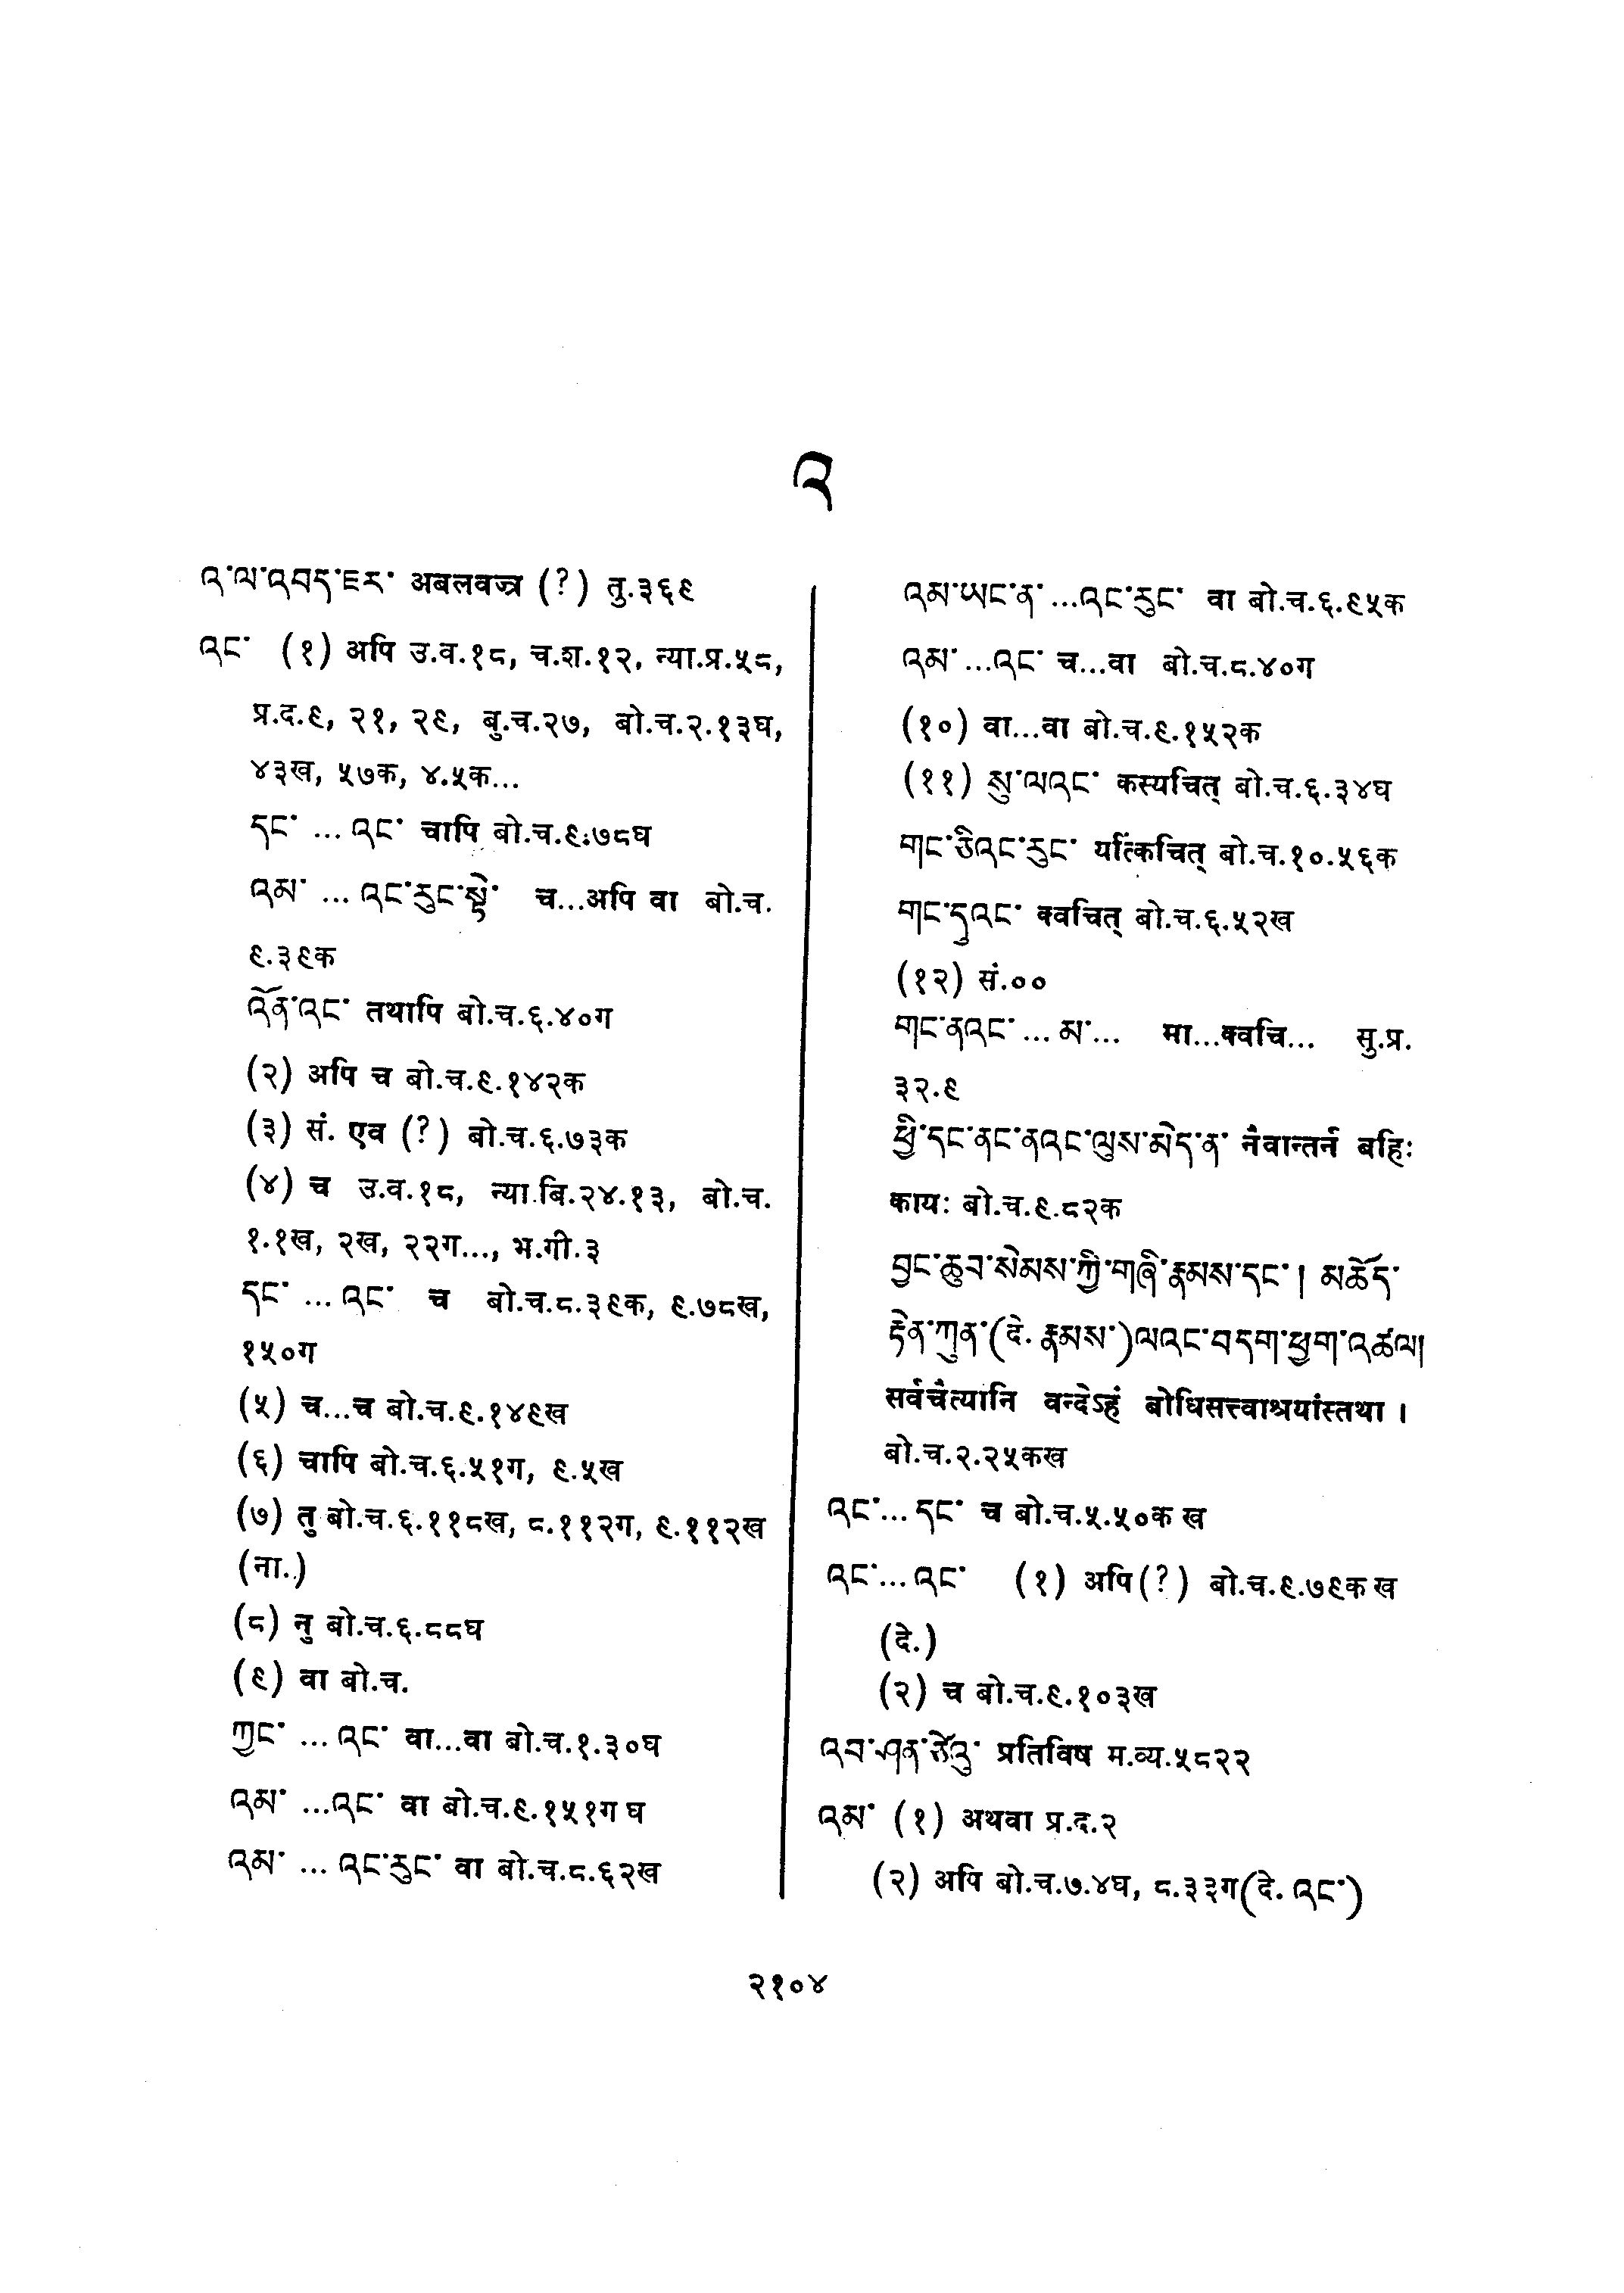 འ
འ་ལ་འབད་ཇར་ अबलवज्र (?) तु.३६९
འང་ (१) अपि उ.व.१८, च.श.१२, न्या.प्र.५८,
प्र.द.९, २१, २९, बु.च.२७, बो.च.२.१३घ,
४३ख, ५७क, ४.५क...
དང་ ... འང་ चापि बो.च.९.७८घ
འམ་ ... འང་རུང་སྟེ་ च...अपि वा बो.च.
९.३९क
འོན་འང་ तथापि बो.च.६.४०ग
(२) अपि च बो.च.९.१४२क
(३) सं. एव (?) बो.च.६.७३क
(४) च उ.व.१८, न्या.बि.२४.१३, बो.च.
१.१ख, २ख, २२ग..., भ.गी.३
དང་ ... འང་ च बो.च.८.३९क, ९.७८ख,
१५०ग
(५) च...च बो.च.९.१४९ख
(६) चापि बो.च.६.५१ग, ९.५ख
(७) तु बो.च.६.११८ख, ८.११२ग, ९.११२ख
(ना.)
(८) नु बो.च.६.८८घ
(९) वा बो.च.
ཀྱང་ ... འང་ वा...वा बो.च.१.३०घ
འམ་ ...འང་ वा बो.च.९.१५१ग घ
འམ་ ... འང་རུང་ वा बो.च.८.६२ख
འམ་ཡང་ན་ ...འང་རུང་ वा बो.च.६.९५क
འམ་ ...འང་ च...वा बो.च.८.४०ग
(१०) वा...वा बो.च.९.१५२क
(११) སུ་ལའང་ कस्यचित् बो.च.६.३४घ
གང་ཅིའང་རུང་ यत्किंचित् बो.च.१०.५६क
གང་དུའང་ क्वचित् बो.च.६.५२ख
(१२) सं.००
གང་ནའང་ ... མ་ ... मा...क्वचि... सु.प्र.
३२.९
ཕྱི་དང་ནང་ནའང་ལུས་མེད་ན་ नैवान्तर्न बहिः
कायः बो.च.९.८२क
བྱང་ཆུབ་སེམས་ཀྱི་གཞི་རྣམས་དང་། མཆོད་
རྟེན་ཀུན་(दे. རྣམས་)ལའང་བདག་ཕྱག་འཚལ།
सर्वचैत्यानि वन्देऽहं बोधिसत्त्वाश्रयांस्तथा ।
बो.च.२.२५कख
འང་... དང་ च बो.च.५.५०क ख
འང་... འང་ (१) अपि(?) बो.च.९.७९क ख
(दे.)
(२) च बो.च.९.१०३ख
འབ་ཤན་ཙེའུ་ प्रतिविष म.व्य.५८२२
འམ་ (१) अथवा प्र.द.२
(२) अपि बो.च.७.४घ, ८.३३ग(दे. འང་)
२१०४